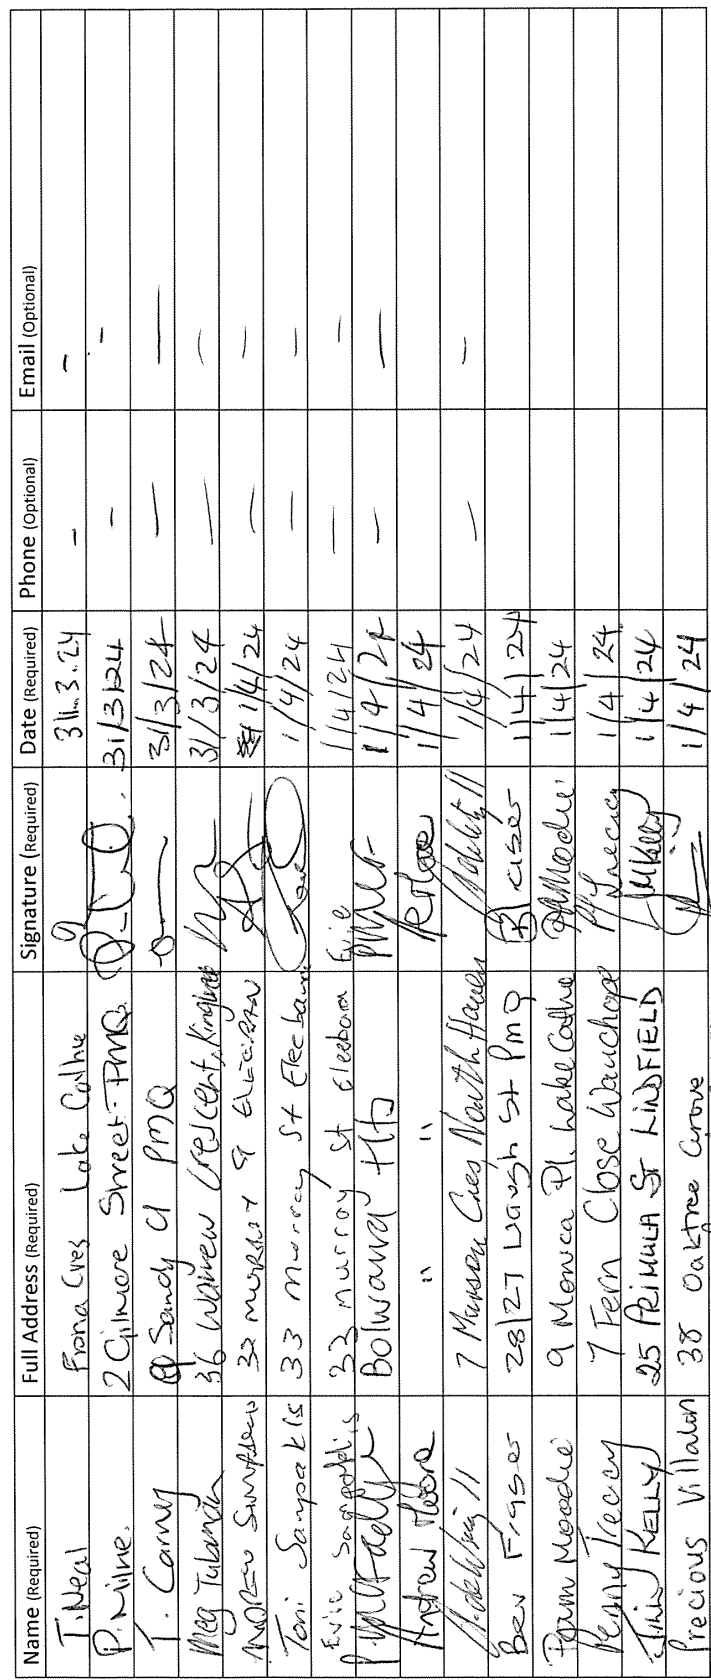 Name (Required) Full Address (Required) Signature (Required) Date (Required) Phone (Optional) Email (Optional)
T. Neal Fiona Cres Lake Cathie 31.3.24 - -
P. Milne. 2 Gilmore Street - PMQ. 31/3/24 - -
T. Carney Sandy Cl PMQ 31/3/24 — —
Meg 36 Warren Crescent, 31/3/24 — —
ANDREW 33 MURRAY ST 1/4/24 — —
Toni 33 Murray St 1/4/24 — —
Evie 33 Murray St Evie 1/4/24 — —
Bolwarra Hts 1/4/24 — —
Andrew Moore " " 1/4/24
7 Cres North Haven 1/4/24 — —
Bev Fraser 28/27 Waugh St PMQ 1/4/24
Pam Moodie 9 Monica Pl. Lake Cathie Moodie 1/4/24
Penny Treacy 7 Fern Close Wauchope Treacy 1/4/24
KELLY 25 PRIMULA ST LINDFIELD Kelly 1/4/24
Precious Villalon 38 Oaktree Grove 1/4/24